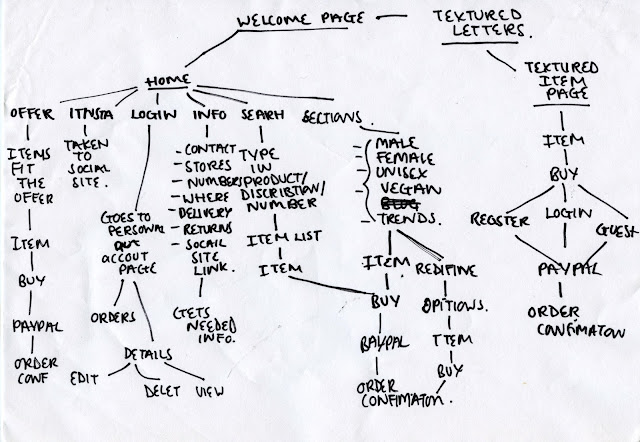 WELCOME PAGE
TEXTURED
LETTERS.
TEXTURED
ITEM
PAGE
HOME
OFFER
ITNSTA
LOGIN
INFO
SEARH
SECTIONS.
ITENS
FIT
THE
OFFER
ITEM
BUY
PAYPAL
ORDER
CONF
TAKEN
TO
SOCIAL
SITE.
GOES TO
PERSONAL
ACCOUT
PAGE
ORDERS
DETAILS
EDIT
DELET
VIEW
- CONTACT
- STORES
- NUMBERS
- WHERE
- DELIVERY
- RETURNS
- SOCAIL
SITE
LINK.
GETS
NEEDED
INFO.
TYPE
IN
PRODUCT/
DISCRIBTION/
NUMBER
ITEM LIST
ITEM
- MALE
- FEMALE
- UNISEX
VEGAN
BLOG
- TRENDS.
ITEM
BUY
PAYPAL
ORDER
CONFIMATON.
REDIFINE
OPITIONS.
ITEM
BUY
ITEM
BUY
REGSTER
LOGIN
GUEST
PAYPAL
ORDER
CONFIMATON